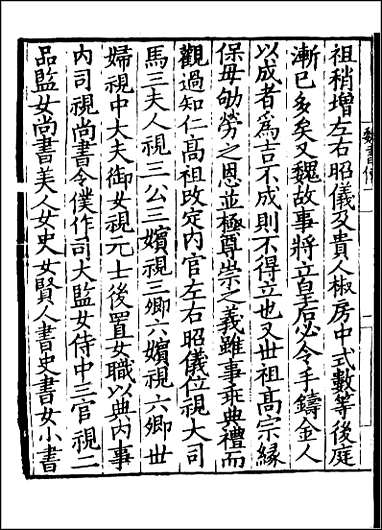 祖稍增左右昭儀及貴人椒房中式數等後庭
漸已多矣又魏故事將立皇后必令手鑄金人
以成者爲吉不成則不得立也又世祖高宗緣
保母劬勞之恩並極尊崇之義雖事乖典禮而
觀過知仁高祖改定内官左右昭儀位視大司
馬三夫人視三公三嬪視三卿六嬪視六卿世
婦視中大夫御女視元士後置女職以典内事
内司視尚書令僕作司大監女侍中三官視二
品監女尚書美人女史女賢人書史書女小書